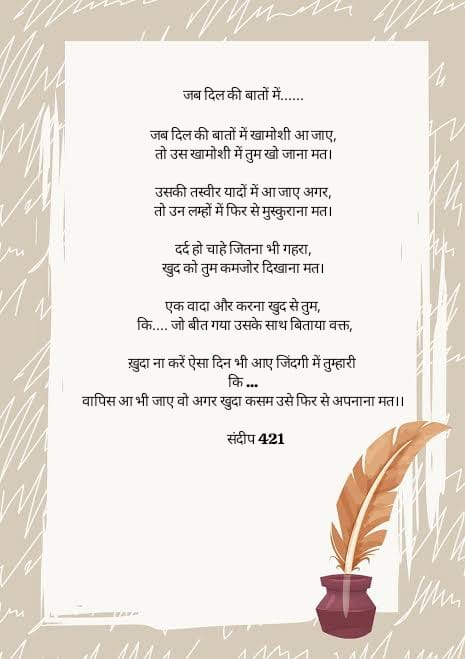 जब दिल की बातों में......
जब दिल की बातों में खामोशी आ जाए,
तो उस खामोशी में तुम खो जाना मत।
उसकी तस्वीर यादों में आ जाए अगर,
तो उन लम्हों में फिर से मुस्कुराना मत।
दर्द हो चाहे जितना भी गहरा,
खुद को तुम कमजोर दिखाना मत।
एक वादा और करना खुद से तुम,
कि.... जो बीत गया उसके साथ बिताया वक्त,
ख़ुदा ना करें ऐसा दिन भी आए जिंदगी में तुम्हारी
कि ...
वापिस आ भी जाए वो अगर खुदा कसम उसे फिर से अपनाना मत।।
संदीप 421